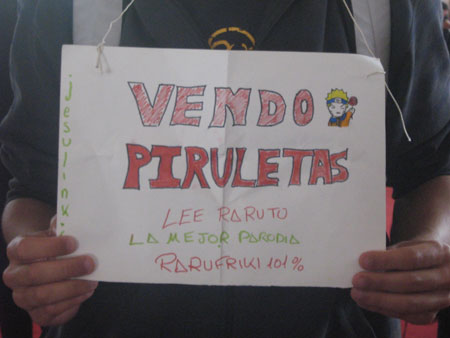 VENDO
PIRULETAS
LEE RARUTO
LA MEJOR PARODIA
RARUFRIKI 101%
jesulink.